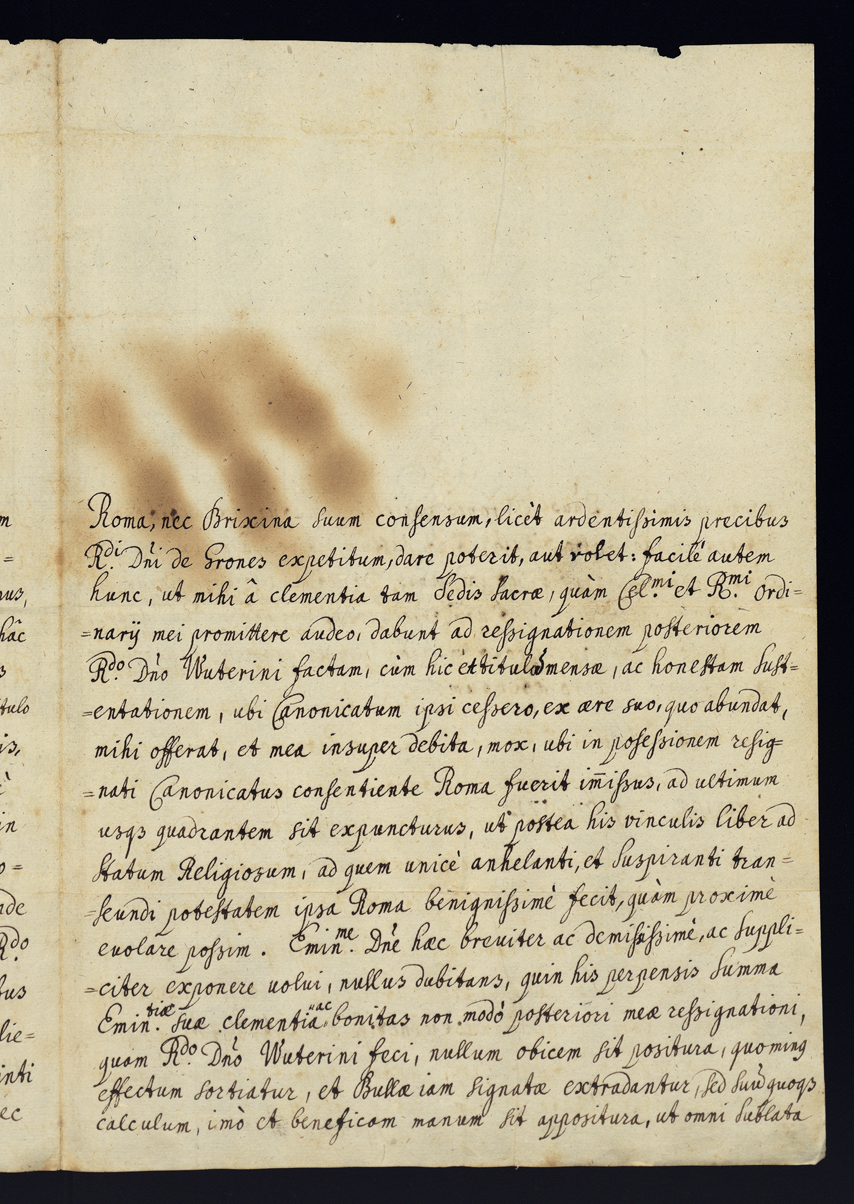 Roma, nec Brixina suum consensum, licèt ardentissimis precibus
Rdi. Dńi de Grones expetitum, dare poterit, aut volet: facilè autem
hunc, ut mihi â clementia tam Sedis Sacræ, quàm Cel.mi et R.mi Ordi=
=narij mei promittere audeo, dabunt ad ressignationem posteriorem
Rdo. Dńo Wuterini factam, cùm hic et titulô mensæ, ac honestam sust=
=entationem, ubi Canonicatum ipsi cessero, ex ære suo, quo abundat,
mihi offerat, et mea insuper debita, mox, ubi in posessionem resig=
=nati Canonicatus consentiente Roma fuerit im̄issus, ad ultimum
usqs quadrantem sit expuncturus, ut postea his vinculis liber ad
statum Religiosum, ad quem unicè anhelanti, et suspiranti tran=
=seundi potestatem ipsa Roma benignissimè fecit, quàm proximè
evolare possim. Emin.me Dńe hæc breviter ac demississimè, ac suppli=
=citer exponere volui, nullus dubitans, quin his perpensis summa
Emin.tiæ suæ clementia ac bonitas non modò posteriori meæ ressignationi,
quam Rdo. Dńo Wuterini feci, nullum obicem sit positura, quoming
effectum sortiatur, et Bullæ iam signatæ extradantur, sed suū quoqs
calculum, imò et beneficam manum sit appositura, ut omni sublata